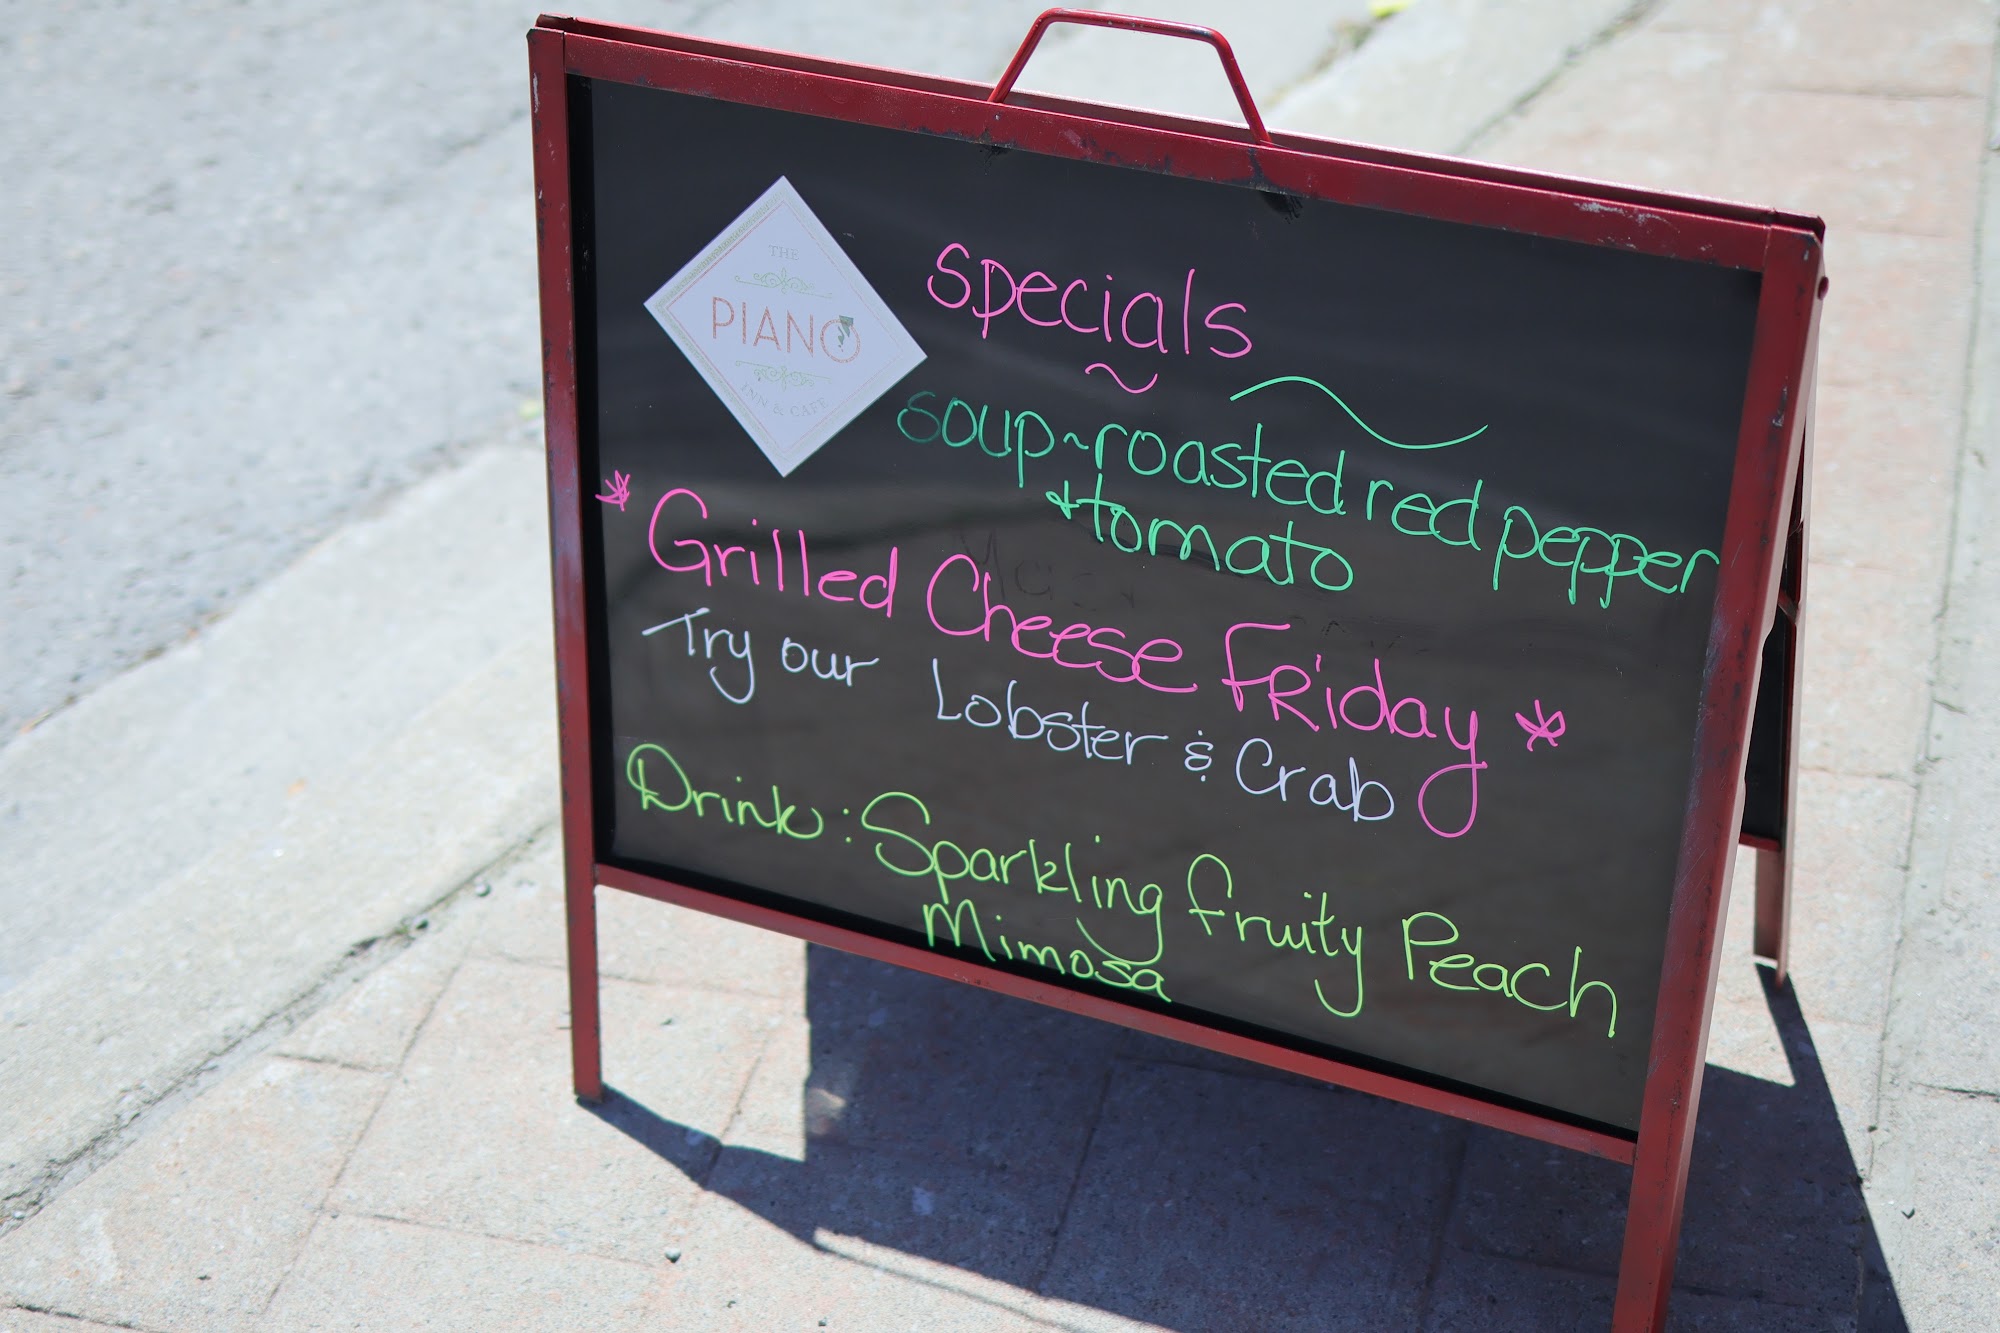 THE
PIANO
INN & CAFE
Specials
~
soup ~ roasted red pepper
+ tomato
* Grilled Cheese Friday *
Try our Lobster & Crab
Drink : Sparkling fruity Peach
Mimosa